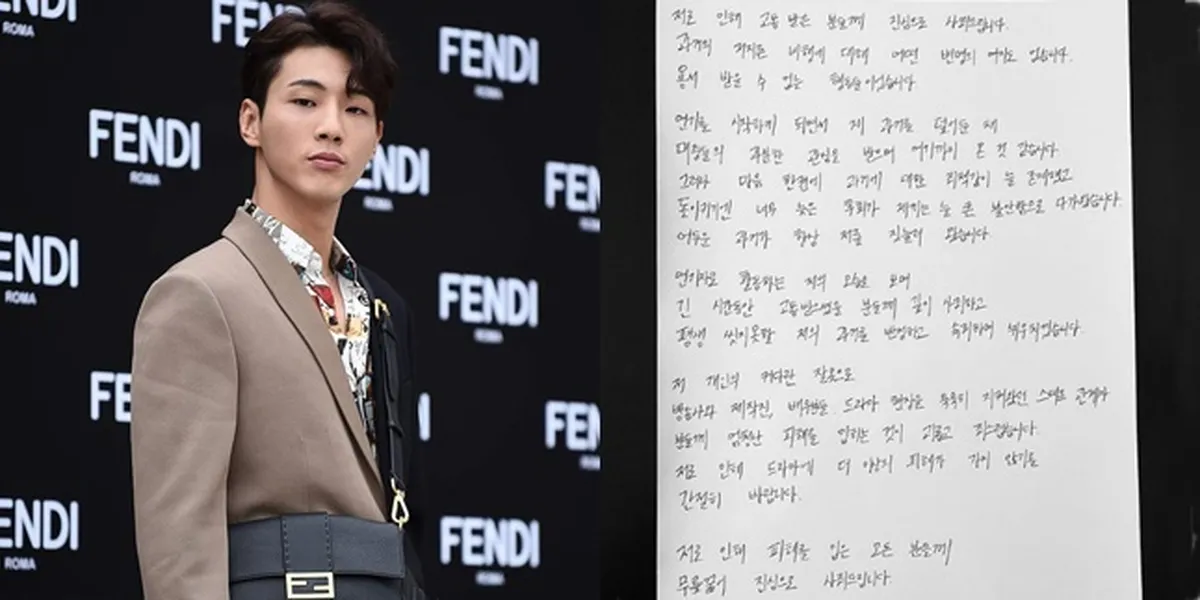 FENDI
ROMA
FENDI
FENDI
ROMA
FENDI
ROMA
FENDI
ROMA
FENDI
FENDI
ROMA
FENDI
ROMA
FENDI
FENDI
FENDI
ROMA
FENDI
ROMA
저로 인해 고통 받은 분들께 진심으로 사죄드립니다.
과거의 저지른 비행에 대해 어떤 변명의 여지도 없습니다.
용서 받을 수 없는 행동들이었습니다
연기를 시작하게 되면서 제 과거를 덮어둔 채
대중들의 과분한 관심을 받으며 여기까지 온 것 같습니다
그러나 마음 한켠에 과거에 대한 죄책감이 늘 존재했고
돌이키기엔 너무 늦은 후회가 저에게는 늘 큰 불안함으로 다가왔습니다.
어두운 과거가 항상 저를 짓눌러 왔습니다.
연기자로 활동하는 저의 모습을 보며
긴 시간동안 고통받으셨을 분들께 깊이 사죄하고
평생 씻지못할 저의 과거를 반성하고 속죄하며 뉘우치겠습니다.
저 개인의 커다란 잘못으로
방송사와 제작진, 배우들, 드라마 현장을 묵묵히 지켜왔던 스태프 관계자
분들께 엄청난 피해를 입히는 것이 괴롭고 죄스럽습니다.
저로 인해 드라마에 더 이상의 피해가 가지 않기를
간절히 바랍니다.
저로 인해 피해를 입은 모든 분들께
무릎꿇어 진심으로 사죄드립니다.